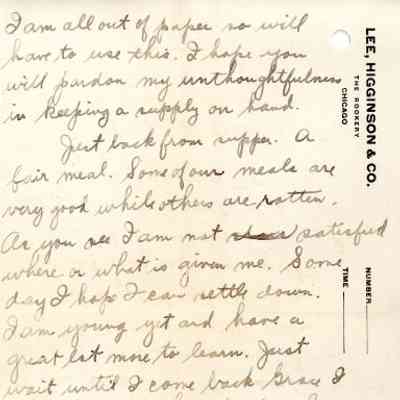 I am all out of paper so will
have to use this. I hope you
will pardon my unthoughtfulness
in keeping a supply on hand.
Just back from supper. A
fair meal. Some of our meals are
very good while others are rotten.
As you see I am not satisfied
where or what is given me. Some
day I hope I can settle down.
I am young yet and have a
great lot more to learn. Just
wait until I come back Grace I
LEE, HIGGINSON & CO.
THE ROOKERY
CHICAGO
NUMBER
TIME